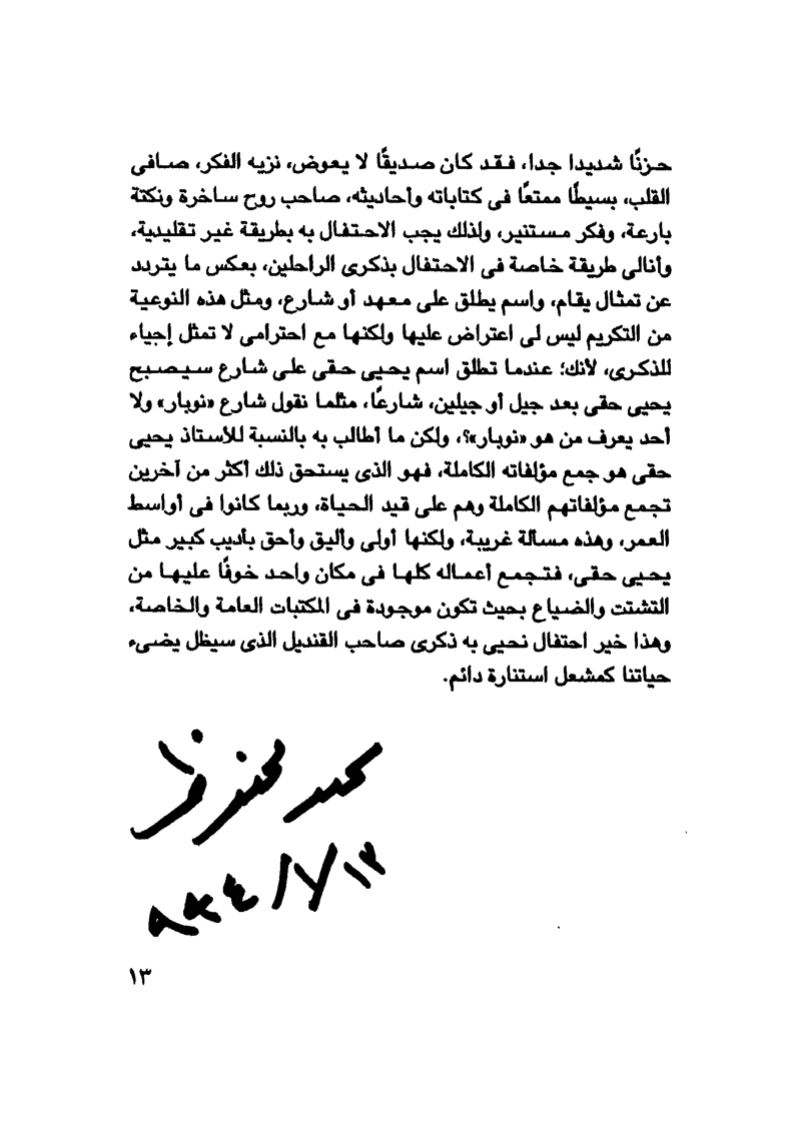 حزنًا شديدا جدا، فقد كان صديقًا لا يعوض، نزيه الفكر، صافى
القلب، بسيطًا ممتعًا فى كتاباته وأحاديثه، صاحب روح ساخرة ونكتة
بارعة، وفكر مستنير، ولذلك يجب الاحتفال به بطريقة غير تقليدية،
وأنالى طريقة خاصة فى الاحتفال بذكرى الراحلين، بعكس ما يتردد
عن تمثال يقام، واسم يطلق على معهد أو شارع، ومثل هذه النوعية
من التكريم ليس لى اعتراض عليها ولكنها مع احترامى لا تمثل إجياء
للذكرى، لأنك؛ عندما تطلق اسم يحيى حقى على شارع سيصبح
يحيى حقى بعد جيل أو جيلين، شارعًا، مثلما نقول شارع «نوبار» ولا
أحد يعرف من هو «نوبار»؟، ولكن ما أطالب به بالنسبة للأستاذ يحيى
حقى هو جمع مؤلفاته الكاملة، فهو الذى يستحق ذلك أكثر من آخرين
تجمع مؤلفاتهم الكاملة وهم على قيد الحياة، وربما كانوا فى أواسط
العمر، وهذه مسألة غريبة، ولكنها أولى وأليق وأحق بأديب كبير مثل
يحيى حقى، فتجمع أعماله كلها فى مكان واحد خوفًا عليها من
التشتت والضياع بحيث تكون موجودة فى المكتبات العامة والخاصة،
وهذا خير احتفال نحيى به ذكرى صاحب القنديل الذى سيظل يضىء
حياتنا كمشعل استنارة دائم.
١٣